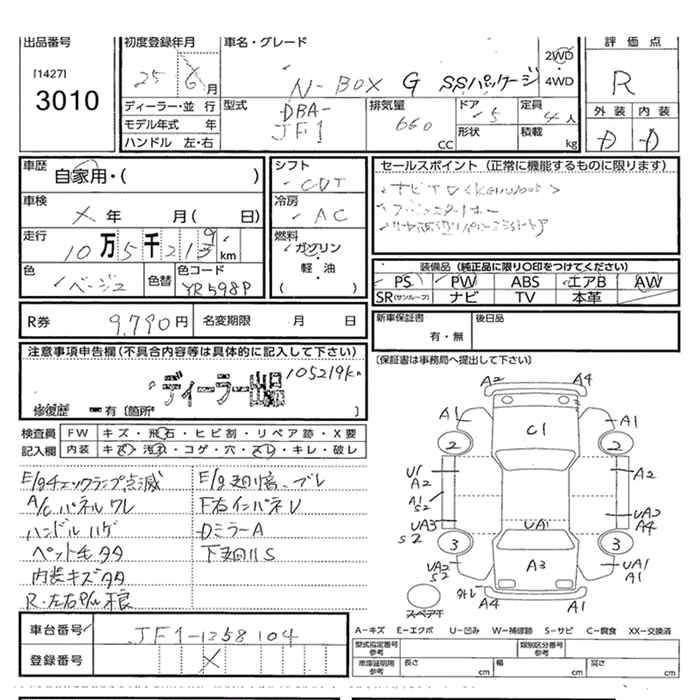 出品番号
[1427]
3010
初度登録年月
25 6 月
車名・グレード
N-BOX G SSパッケージ
2WD
4WD
評価点
R
外装 内装
D D
ディーラー・並 行
モデル年式 年
ハンドル 左・右
型式
DBA-
JF1
排気量
660
CC
ドア
5
形状
定員
4人
積載
kg
車歴
自家用・( )
車検
X 年 月( 日)
走行
10万5千219 km
色
ベージュ
色替
色コード
YR598P
シフト
CVT
冷房
AC
燃料
ガソリン
・
軽・油
( )
セールスポイント (正常に機能するものに限ります)
ナビTV<KENWOOD>
装備品 (純正品に限り〇印をつけてください)
PS PW ABS エアB AW
SR(サンルーフ) ナビ TV 本革
R券 9,790円 名変期限 月 日
新車保証書
有・無
後日品
注意事項申告欄(不具合内容等は具体的に記入して下さい)
ディーラー出品
105219km
修復歴 ー有 〔箇所 〕
〔保証書は事務局へ提出して下さい〕
検査員
記入欄
FW キズ・飛石・ヒビ割・リペア跡・X要
内装 キズ・汚れ・コゲ・穴・スレ・キレ・破レ
E/gチェックランプ点滅
A/C パネルワレ
ハンドルハゲ
ペット毛タタ
内装キズタタ
E/g廻り傷、ブレ
F右インパネU
DミラーA
下廻りS
A2 A4
A1 A1
C1
2 2
U1
A2
A2
A1
S2
UA3
S2
UA1
UA2
A4
3 3
A3
UA2
S2
UA1
A1
外レ
A4 A1
スペアキ
車台番号 JF1-1258104
登録番号 X
A-キズ E-エクボ U-凹み W-補修跡 S-サビ C-腐食 XX-交換済
型式指定番号
参考
類別区分番号
参考
車庫証明用
参考
長さ cm 幅 cm 高さ cm